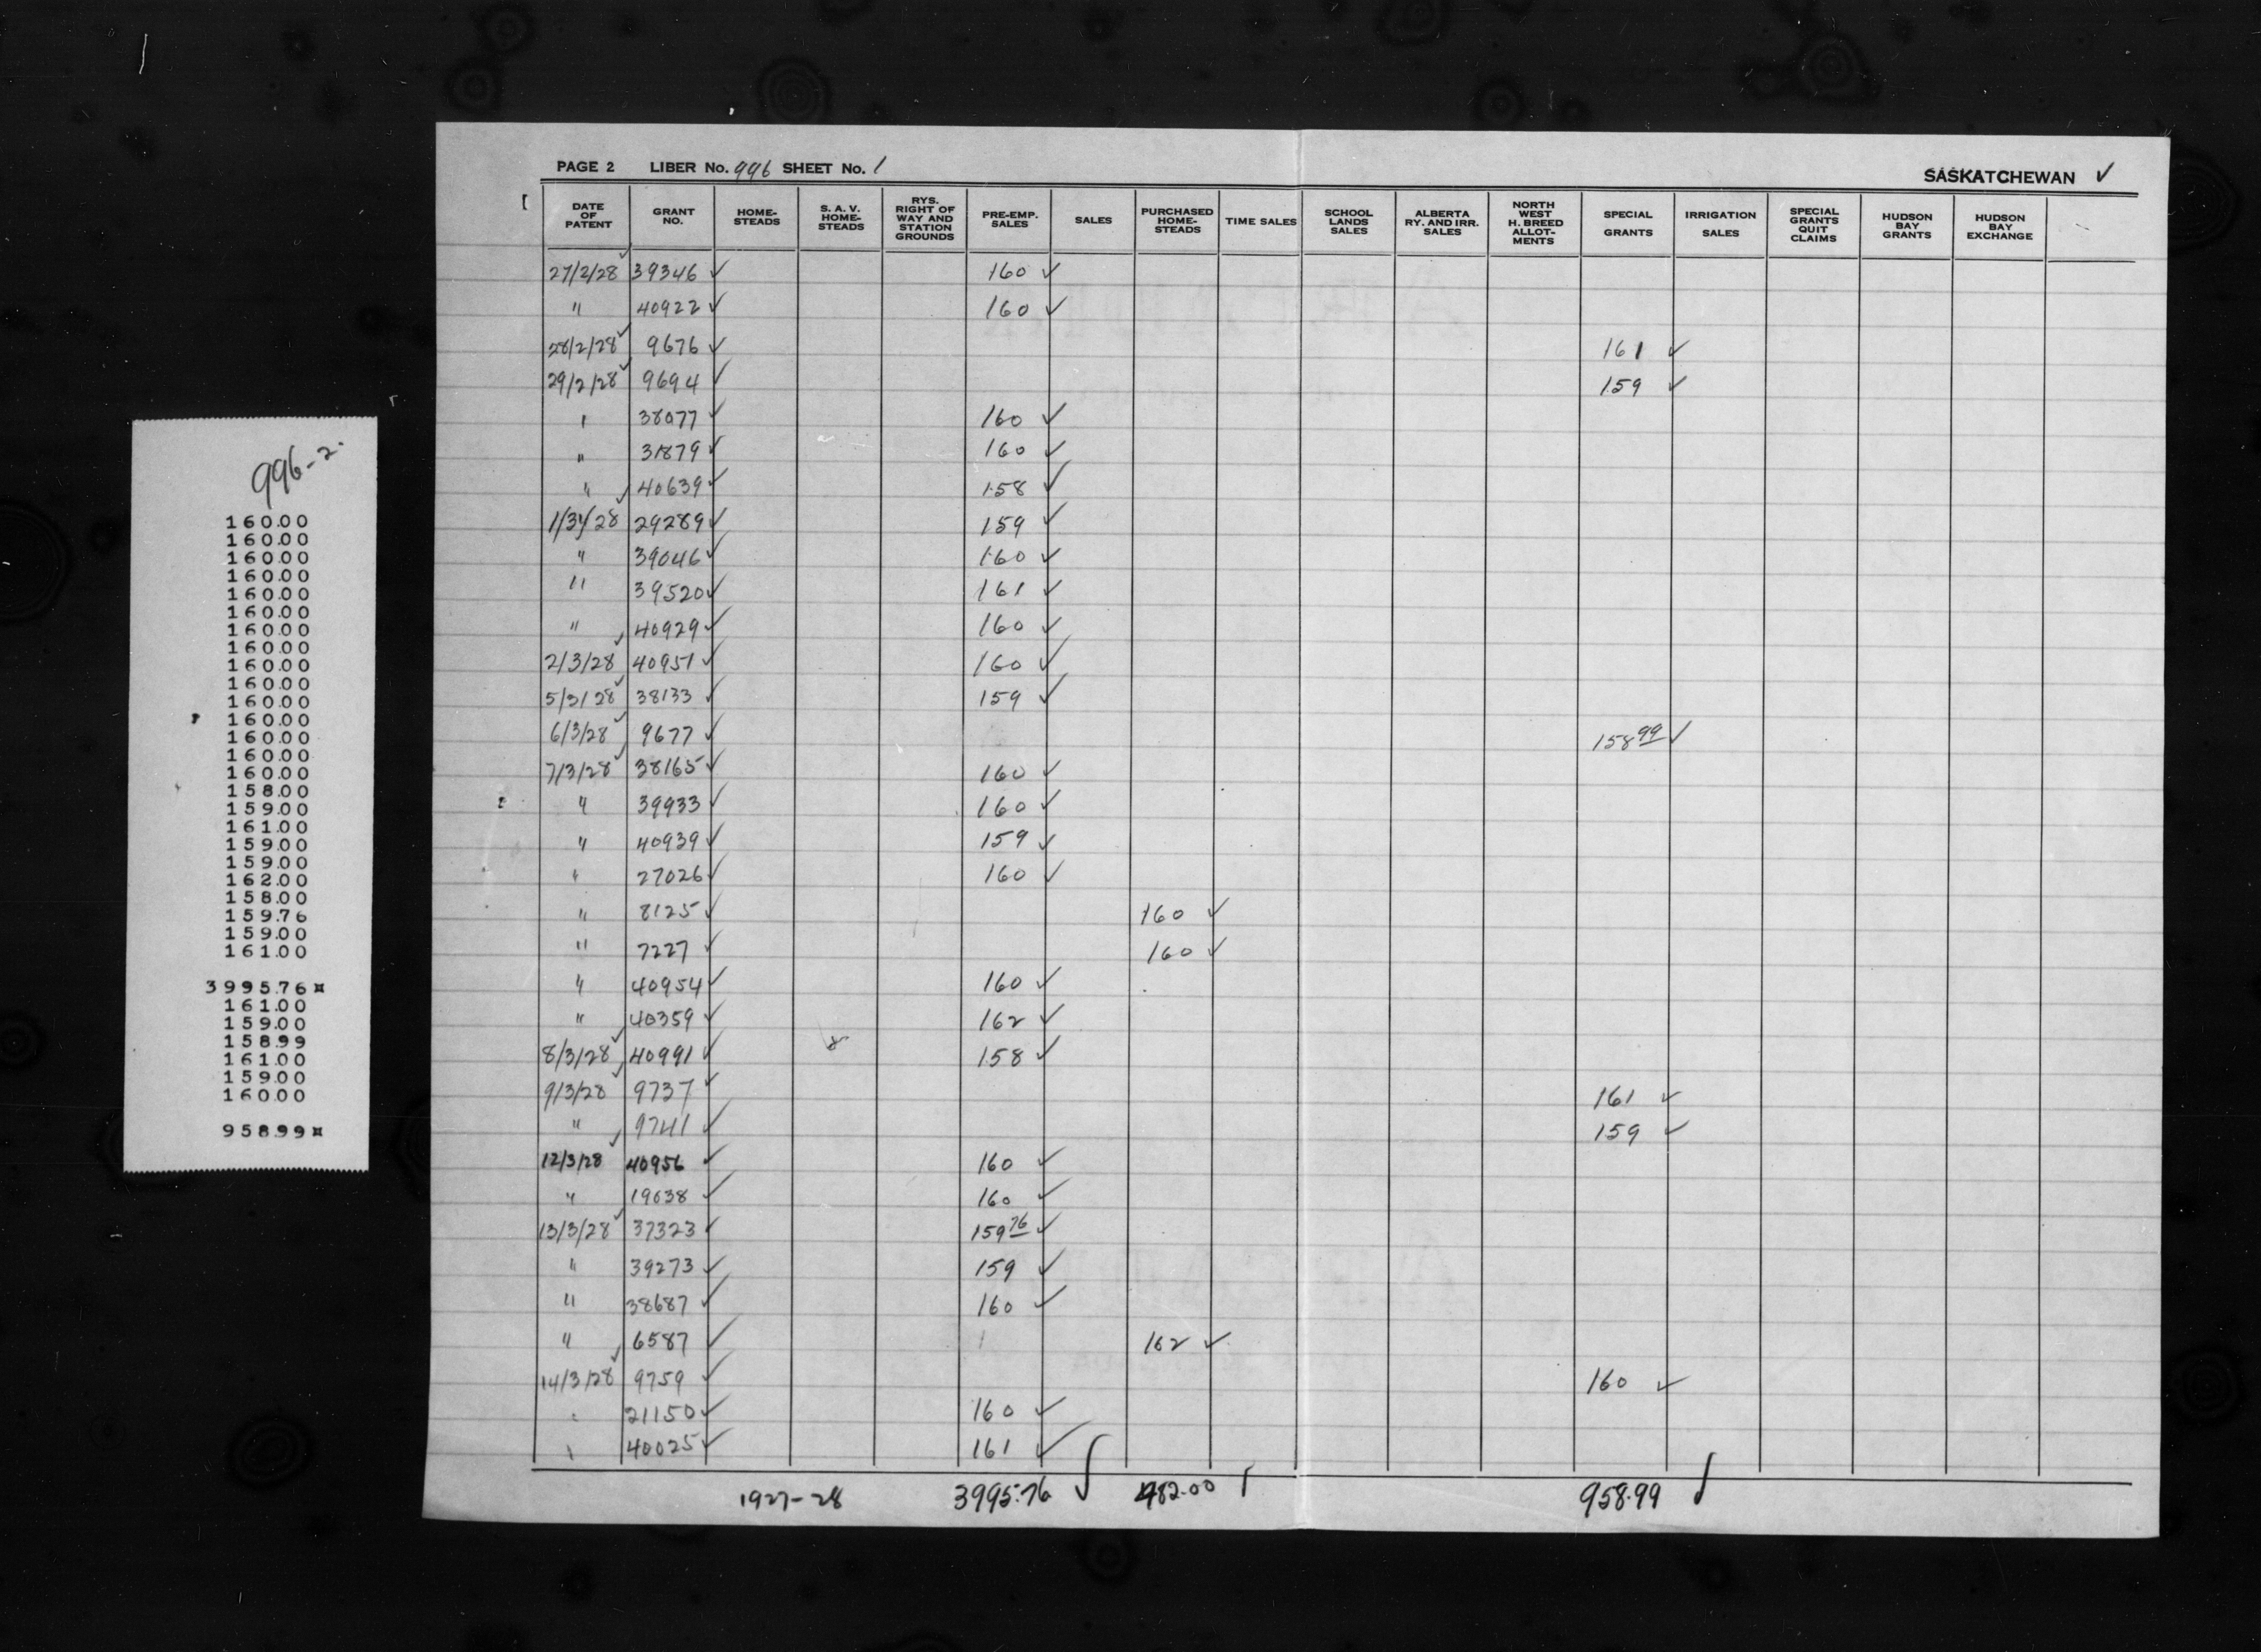 996-2.
160.00
160.00
160.00
160.00
160.00
160.00
160.00
160.00
160.00
160.00
160.00
160.00
160.00
160.00
160.00
158.00
159.00
161.00
159.00
159.00
162.00
158.00
159.76
159.00
161.00
3995.76¤
161.00
159.00
158.99
161.00
159.00
160.00
958.99¤
PAGE 2 LIBER No. 996 SHEET No. 1 SASKATCHEWAN ✓
DATE OF PATENT GRANT NO. HOME-STEADS S. A. V. HOME-STEADS RYS. RIGHT OF WAY AND STATION GROUNDS PRE-EMP. SALES SALES PURCHASED HOME-STEADS TIME SALES SCHOOL LANDS SALES ALBERTA RY. AND IRR. SALES NORTH WEST H. BREED ALLOT-MENTS SPECIAL GRANTS IRRIGATION SALES SPECIAL GRANTS QUIT CLAIMS HUDSON BAY GRANTS HUDSON BAY EXCHANGE
27/2/28 ✓ 39346 ✓ 160 ✓
" 40922 ✓ 160 ✓
28/2/28 ✓ 9676 ✓ 161 ✓
29/2/28 ✓ 9694 ✓ 159 ✓
" 38077 ✓ 160 ✓
" 31879 ✓ 160 ✓
" 40639 ✓ 158 ✓
1/3/28 ✓ 29289 ✓ 159 ✓
" 39046 ✓ 160 ✓
" 39520 ✓ 161 ✓
" 40929 ✓ 160 ✓
2/3/28 ✓ 40951 ✓ 160 ✓
5/3/28 ✓ 38133 ✓ 159 ✓
6/3/28 ✓ 9677 ✓ 158 99 ✓
7/3/28 ✓ 38165 ✓ 160 ✓
" 39933 ✓ 160 ✓
" 40939 ✓ 159 ✓
" 27026 ✓ 160 ✓
" 8125 ✓ 160 ✓
" 7227 ✓ 160 ✓
" 40954 ✓ 160 ✓
" 40359 ✓ 162 ✓
8/3/28 ✓ 40991 ✓ 158 ✓
9/3/28 ✓ 9737 ✓ 161 ✓
" 9741 ✓ 159 ✓
12/3/28 ✓ 40956 ✓ 160 ✓
" 19038 ✓ 160 ✓
13/3/28 ✓ 37323 ✓ 159 76 ✓
" 39273 ✓ 159 ✓
" 38687 ✓ 160 ✓
" 6587 ✓ 162 ✓
14/3/28 ✓ 9759 ✓ 160 ✓
" 21150 ✓ 160 ✓
" 40025 ✓ 161 ✓
1927-28 3995.76 482.00 958.99